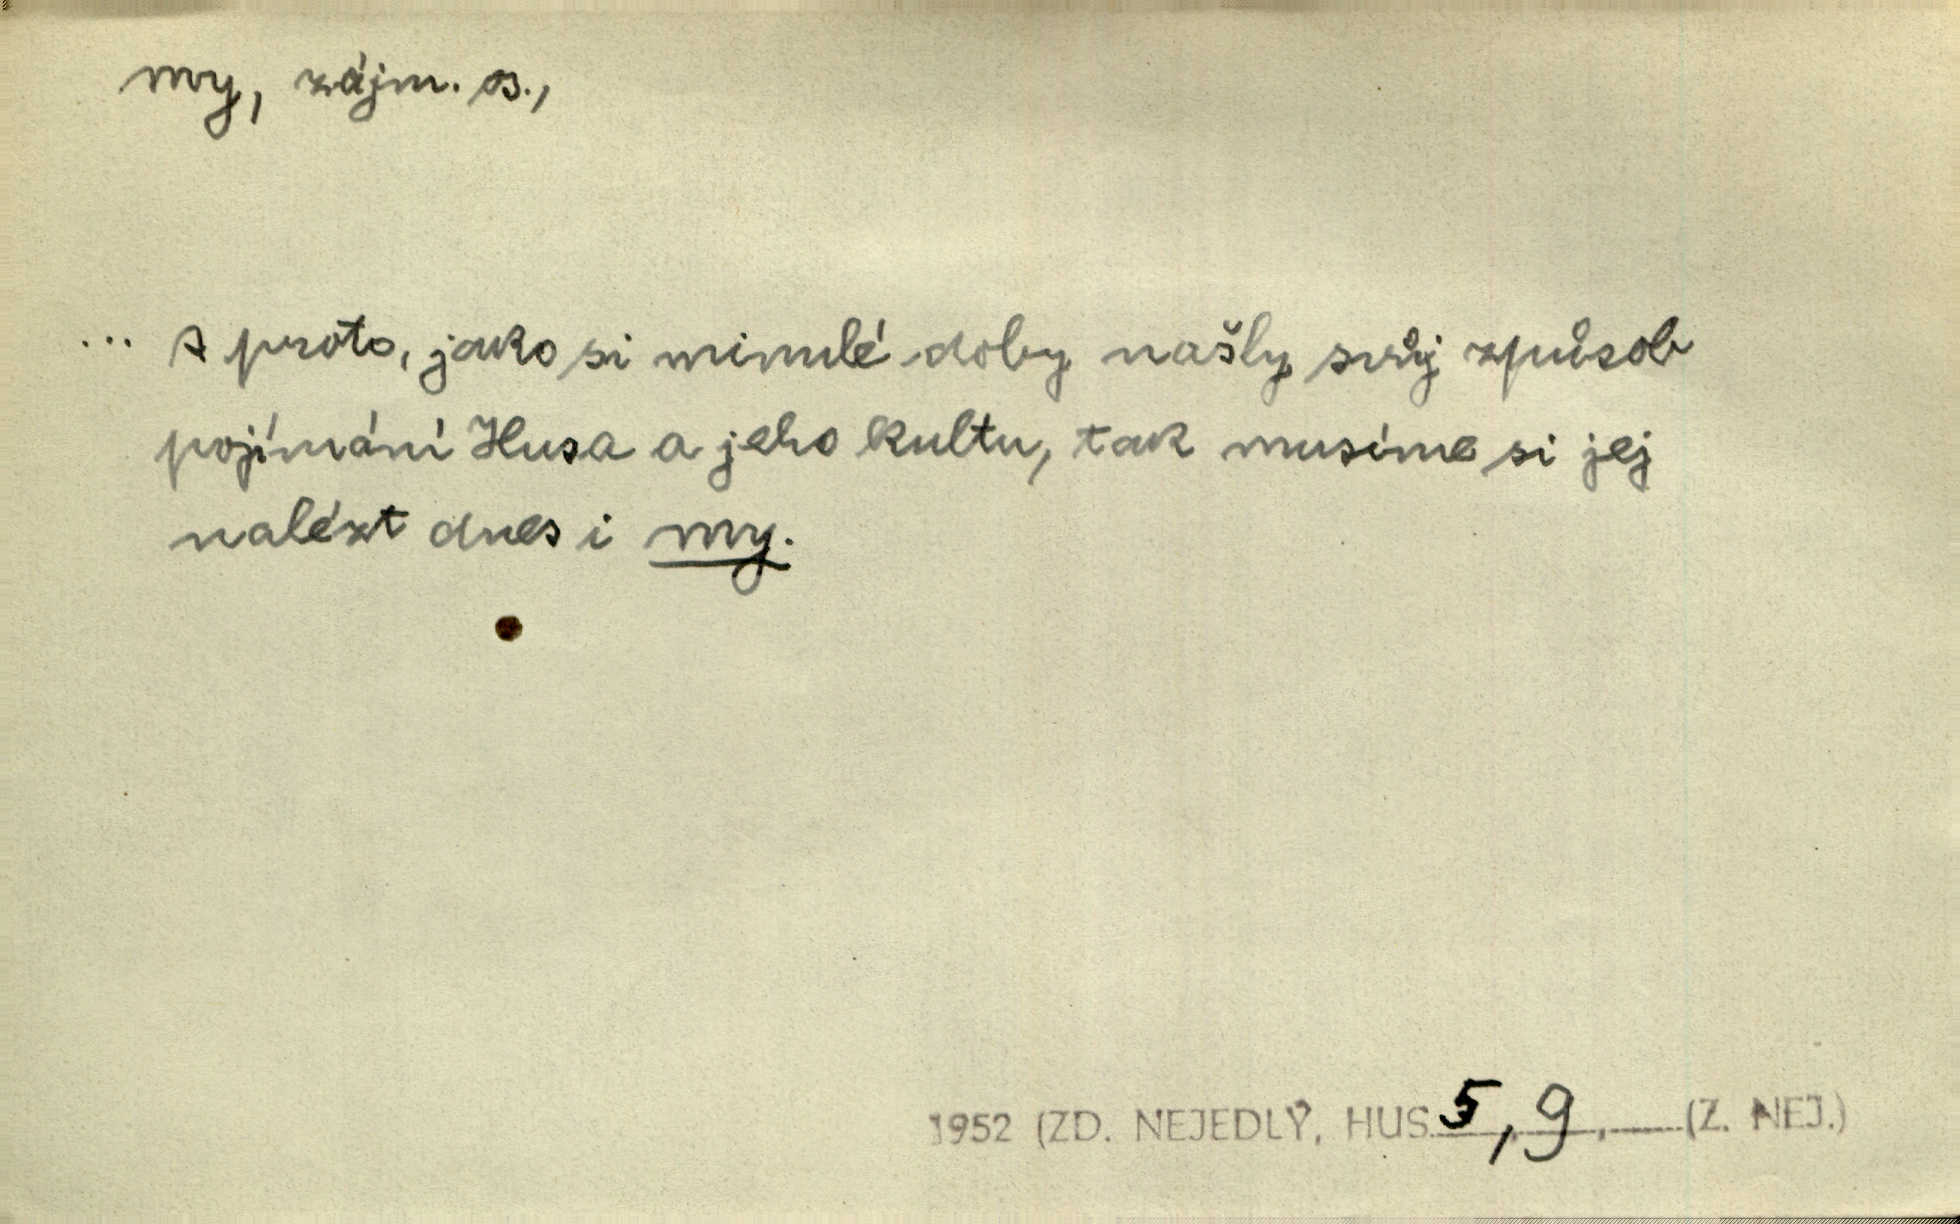 my, zájm. os.,
... A proto, jako si minulé doby našly svůj způsob
pojímání Husa a jeho kultu, tak musíme si jej
nalézt dnes i my.
1952 (ZD. NEJEDLÝ, HUS 5, 9, (Z. NEJ.)